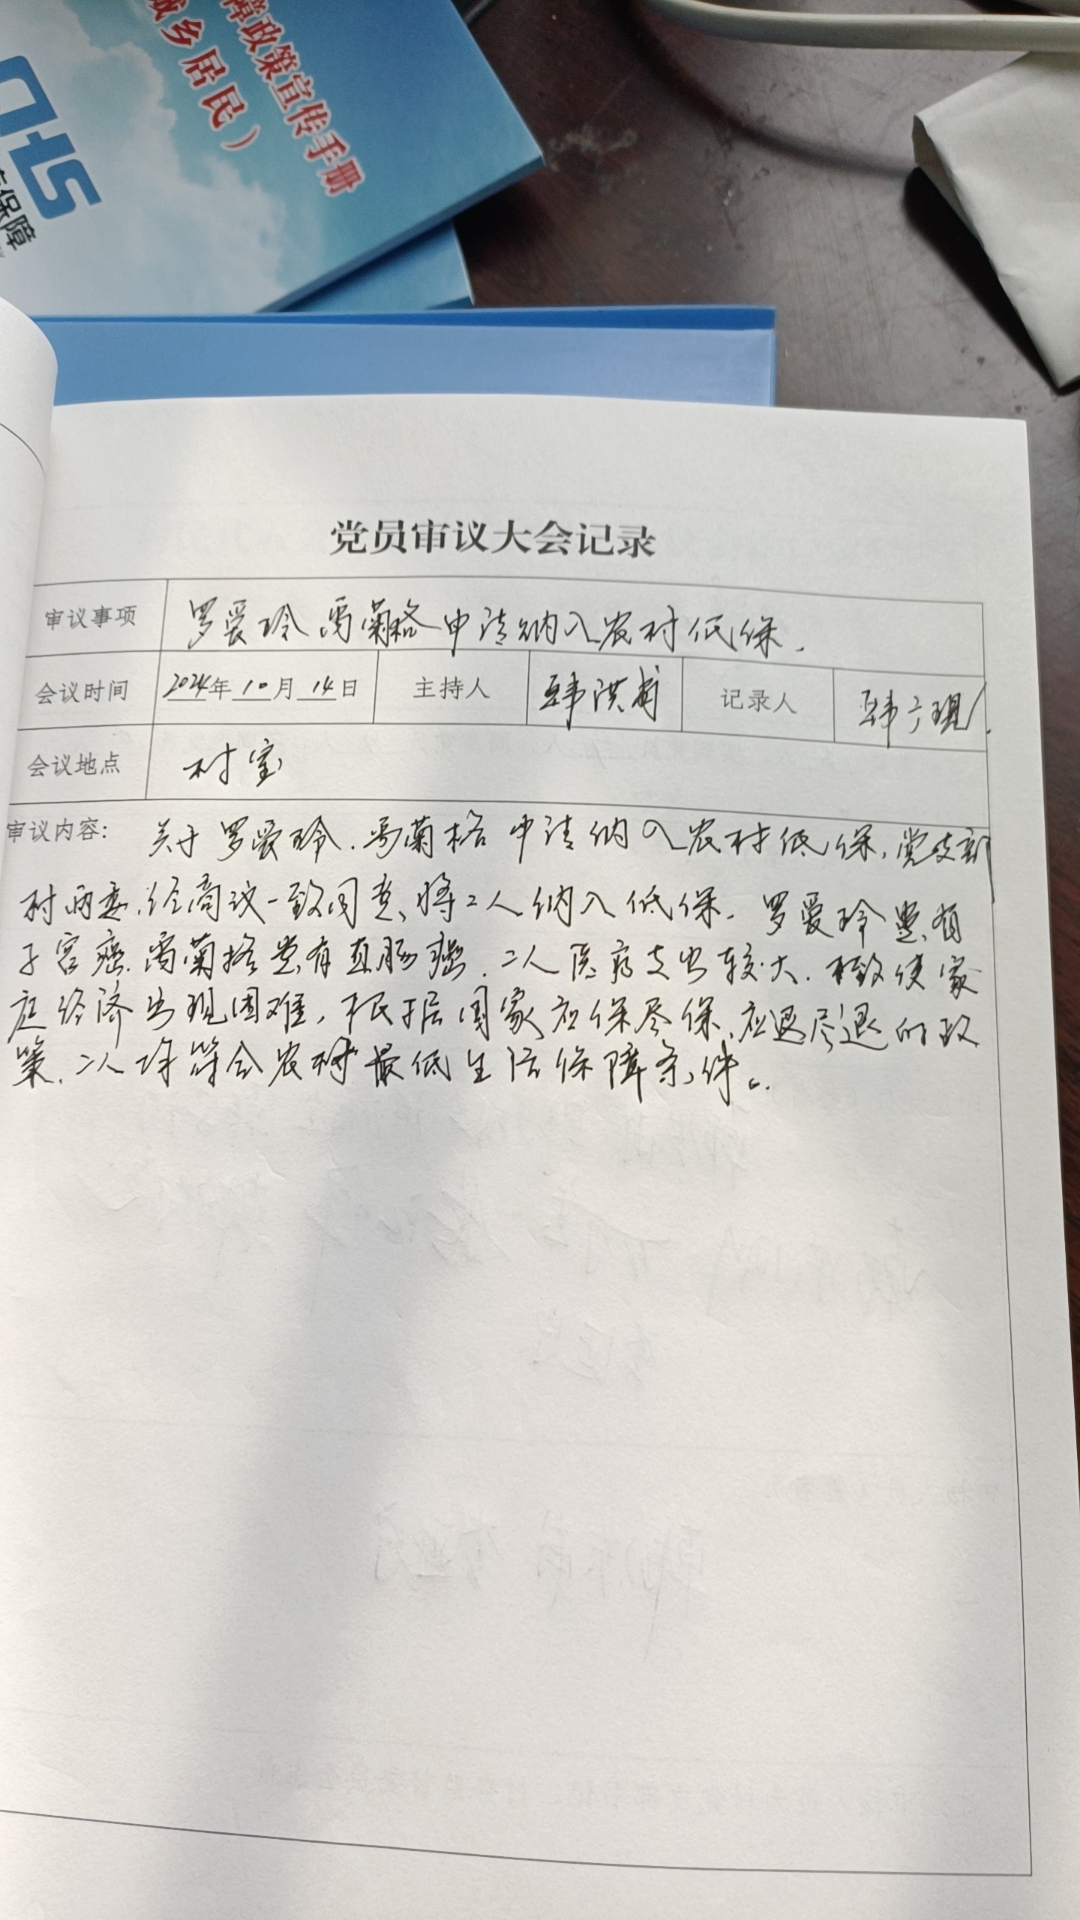 障政策宣传手册
城乡居民）
保障
党员审议大会记录
审议事项 罗爱玲 冯菊格申请纳入农村低保.
会议时间 2024年10月14日 主持人 韩洪 记录人 韩
会议地点 村室
审议内容: 关于罗爱玲.冯菊格申请纳入农村低保,党支部
村两委.经商议一致同意、将二人纳入低保. 罗爱玲患有
子宫癌.冯菊格患有直肠癌.二人医疗支出较大.致使家
庭经济出现困难,根据国家应保尽保、应退尽退的政
策.二人均符合农村最低生活保障条件。